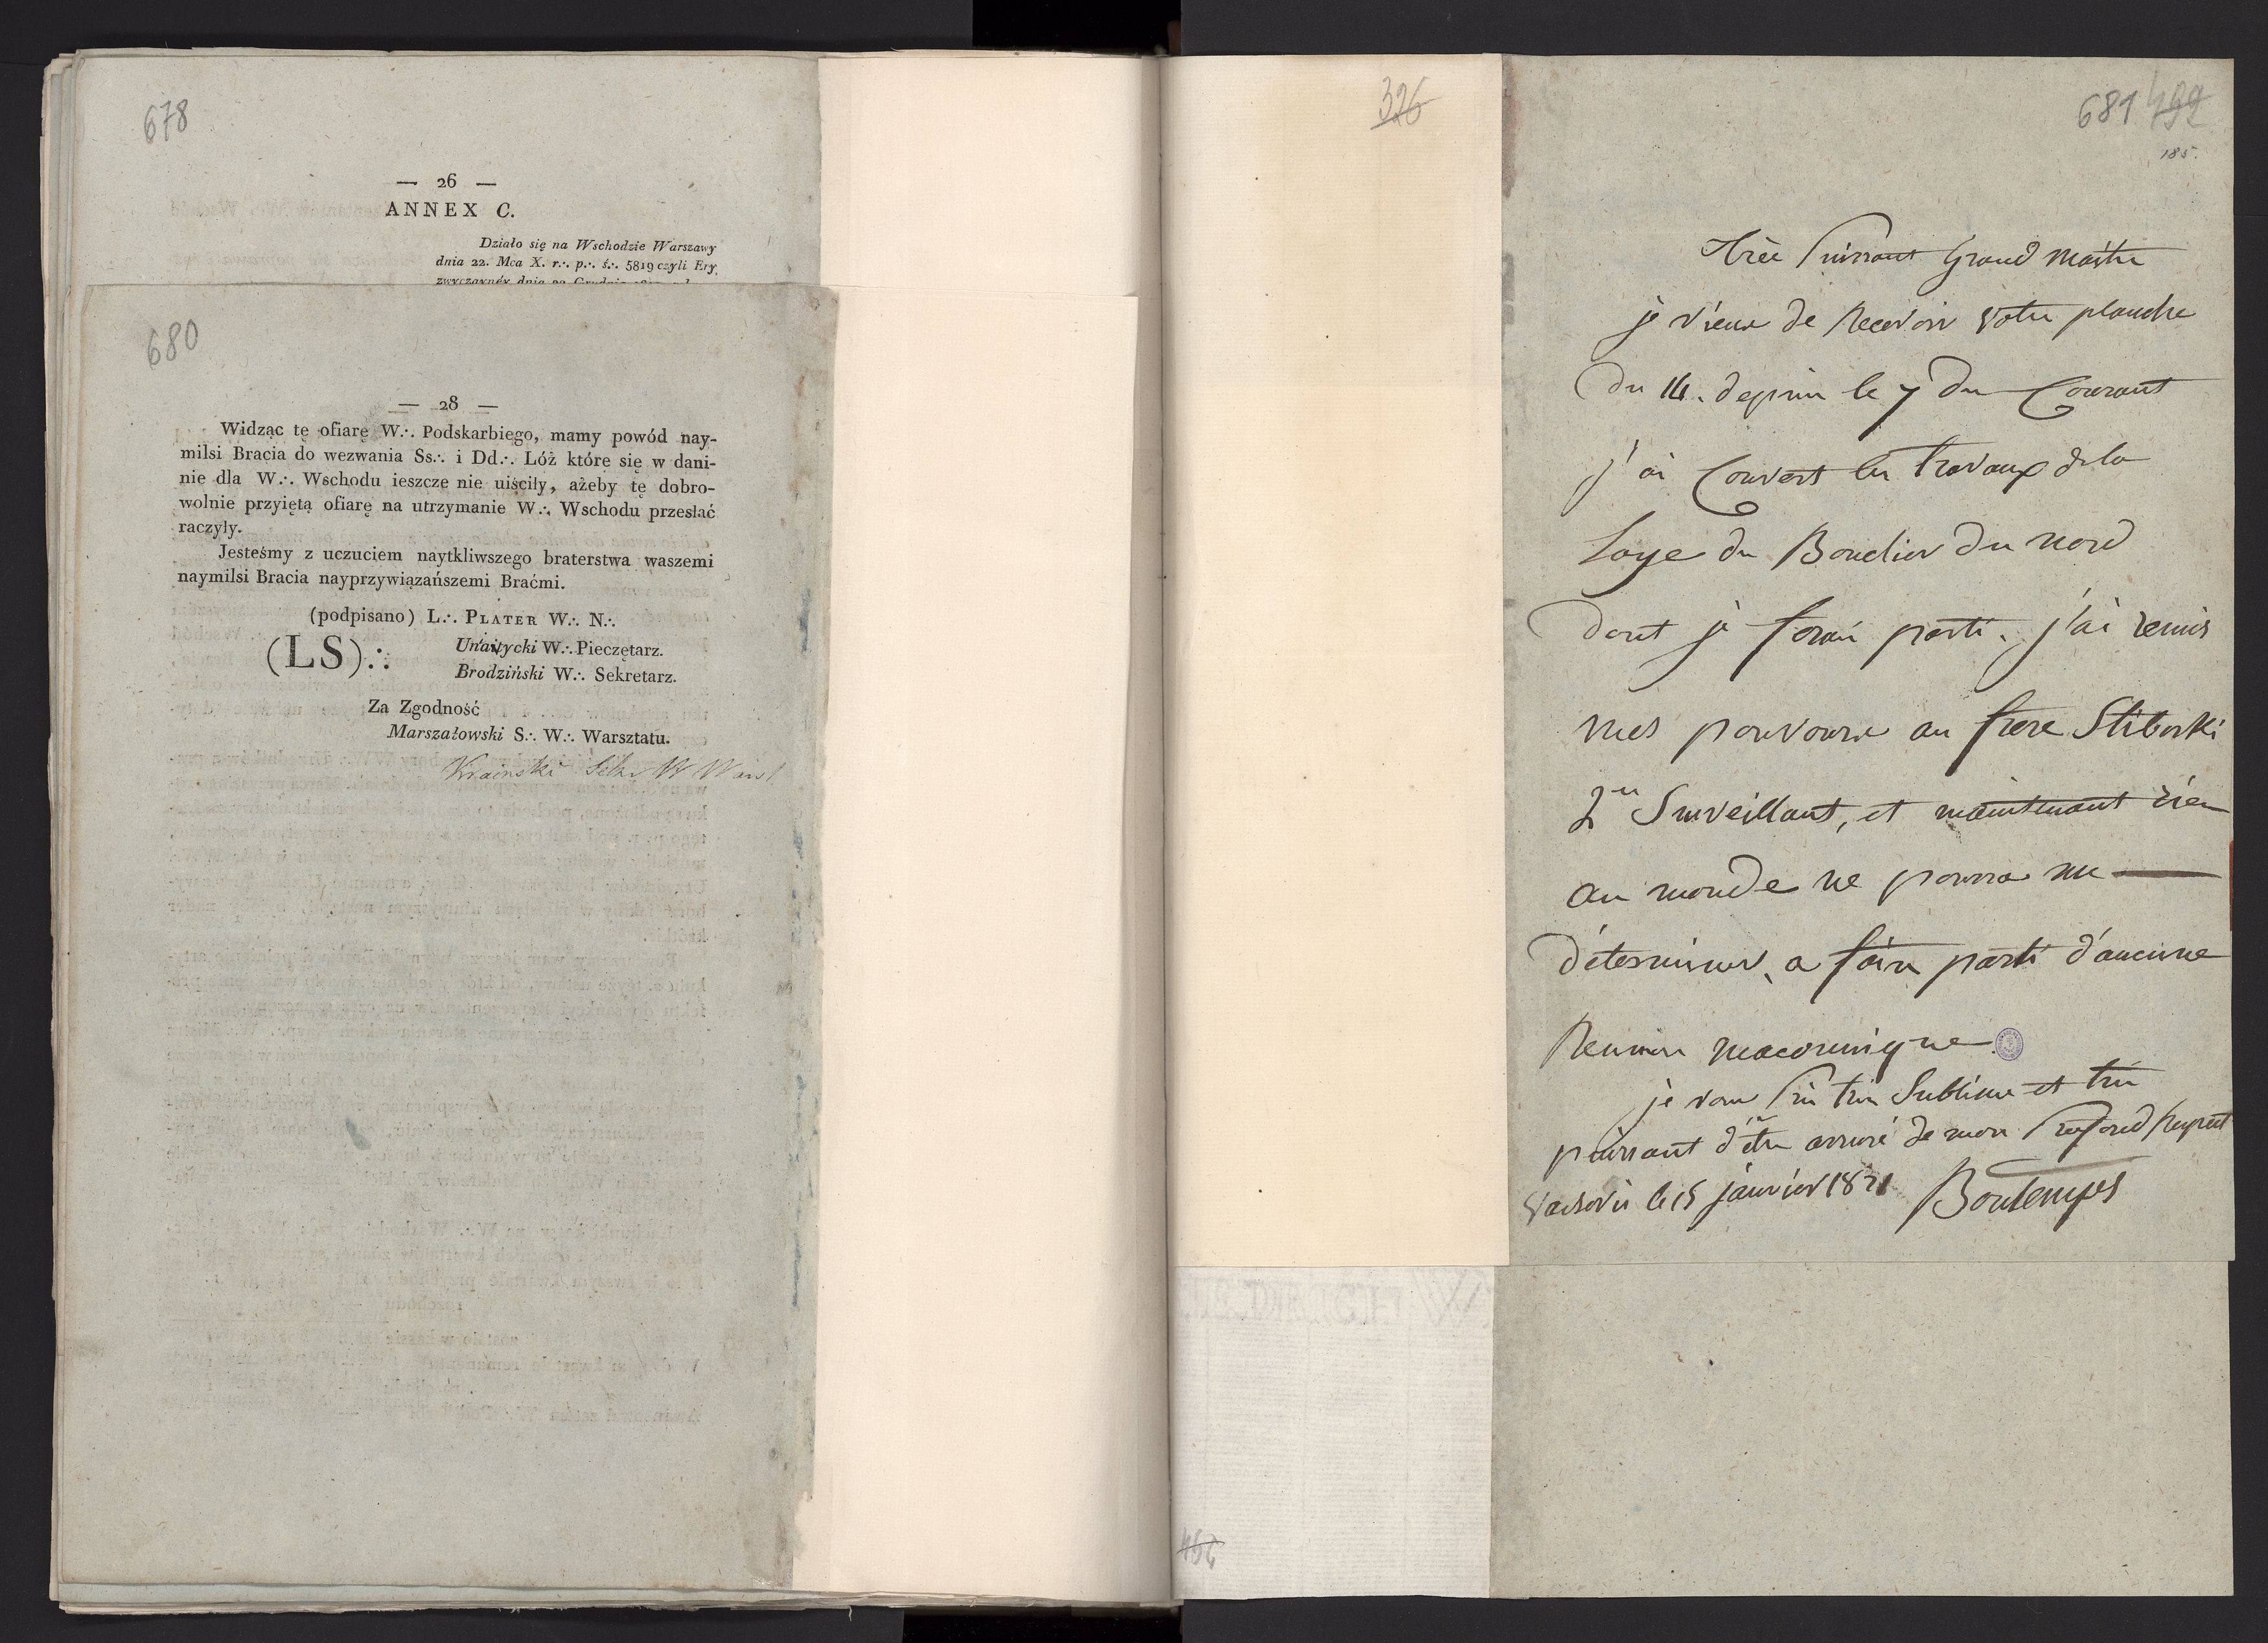 678
— 26 —
ANNEX C.
Działo się na Wschodzie Warszawy
dnia 22. Mca X. r∴ p∴ ś∴ 5819 czyli Ery
680
— 28 —
Widząc tę ofiarę W∴ Podskarbiego, mamy powód nay-
milsi Bracia do wezwania Ss∴ i Dd∴ Lóż które się w dani-
nie dla W∴ Wschodu ieszcze nie uiściły, ażeby tę dobro-
wolnie przyiętą ofiarę na utrzymanie W∴ Wschodu przesłać
raczyły.
Jesteśmy z uczuciem naytkliwszego braterstwa waszemi
naymilsi Bracia nayprzywiązańszemi Braćmi.
(podpisano) L∴ PLATER W∴ N∴
(LS)∴
W∴ Pieczętarz.
Brodziński W∴ Sekretarz.
Za Zgodność
Marszałowski S∴ W∴ Warsztatu.
Krainski Sekr W Warst
326
681 499
185.
Très Puissant Grand Maitre
je viens de Recevoir votre planche
du 14. depuis le 7 du Courant
j'ai Couvert les travaux de la
Loge du Bouclier du nord
dont je ferais parti. j'ai remis
mes pouvoirs au frere Stiborski
2me Surveillant, et maintenant rien
au monde ne pourra me
déterminer, a faire parti d'aucune
Reunion maconnique.
je vous prie très Sublime et très
puissant d'être assuré de mon profond Respect
Varsovie le 15 janvier 1821 Bontemps
456